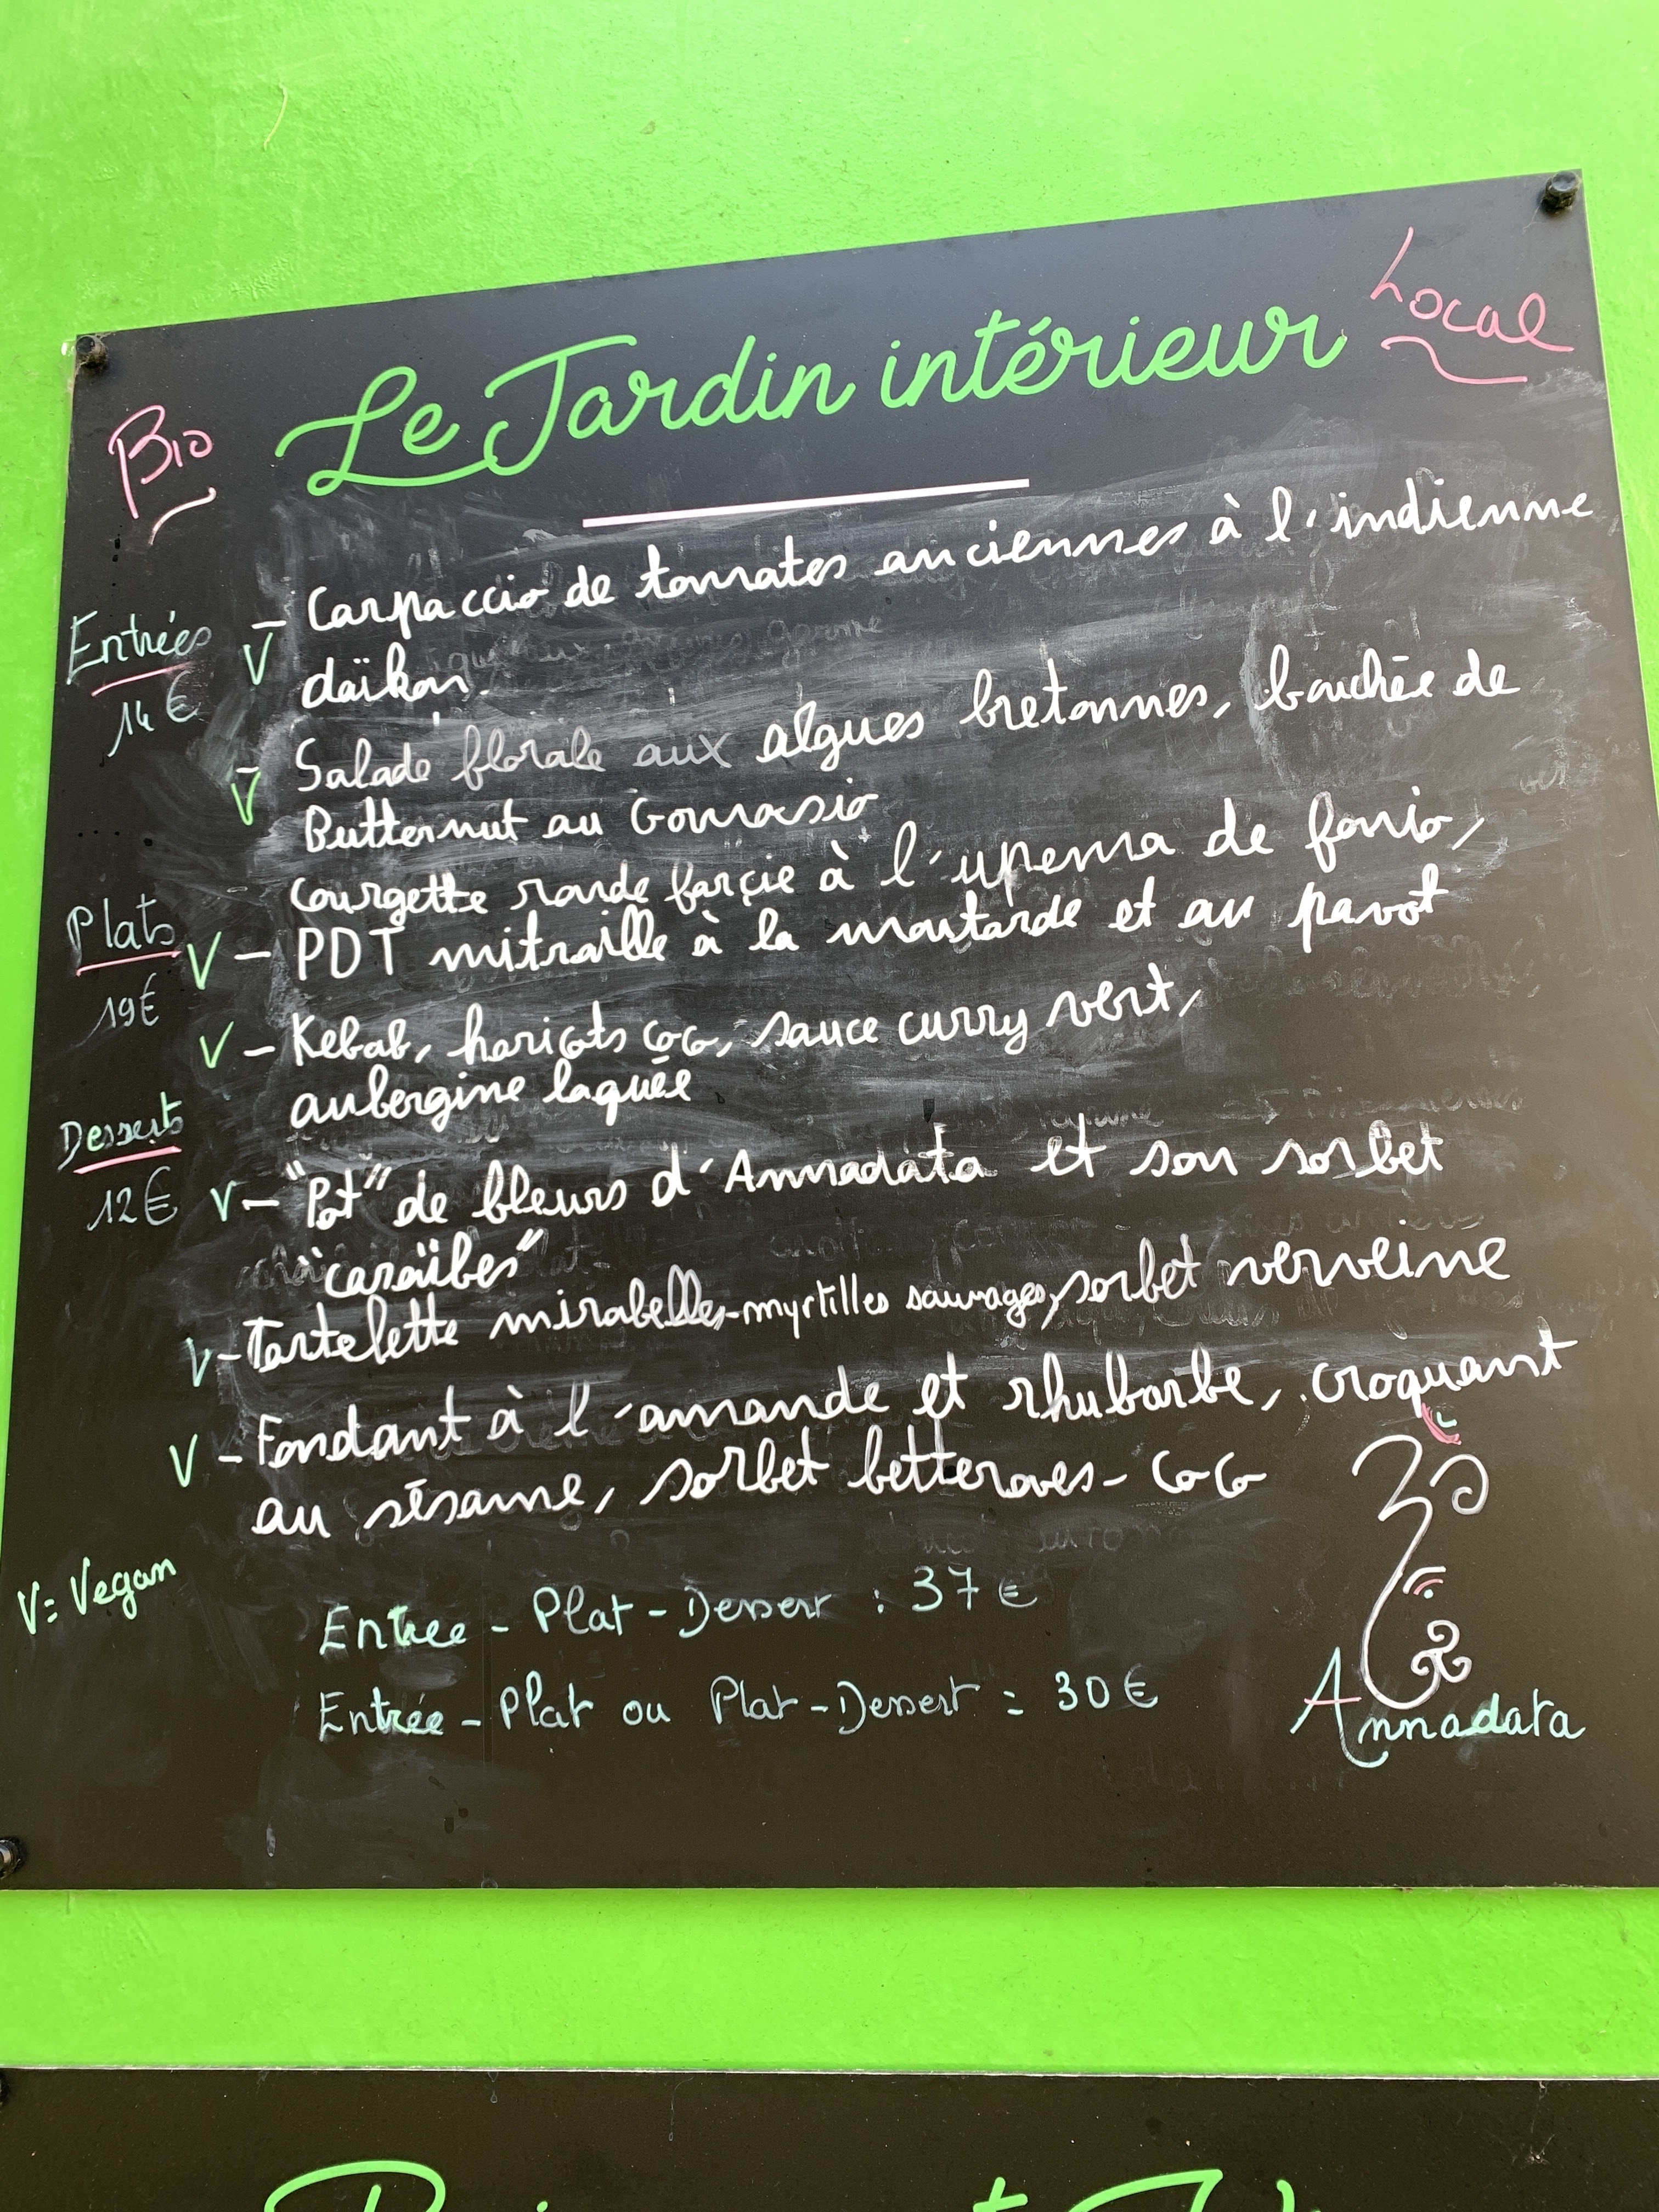 Local
Le Jardin intérieur
Bio
Entrées
14 €
V - Carpaccio de tomates anciennes à l'indienne
daïkon.
V - Salade florale aux algues bretonnes, bouchée de
Butternut au Gomasio
Plats
19€
Courgette ronde farçie à l'upema de fonio,
V - PDT mitraille à la moutarde et au pavot
V - Kebab, haricots coco, sauce curry vert,
aubergine laquée
Desserts
12€
V - "Pot" de fleurs d'Annadata et son sorbet
"caraïbes"
V - Tartelette mirabelles-myrtilles sauvages, sorbet verveine
V - Fondant à l'amande et rhubarbe, croquant
au sésame, sorbet betteraves - coco
V = Vegan
Entrée - Plat - Dessert : 37 €
Entrée - Plat ou Plat - Dessert = 30 €
Annadata